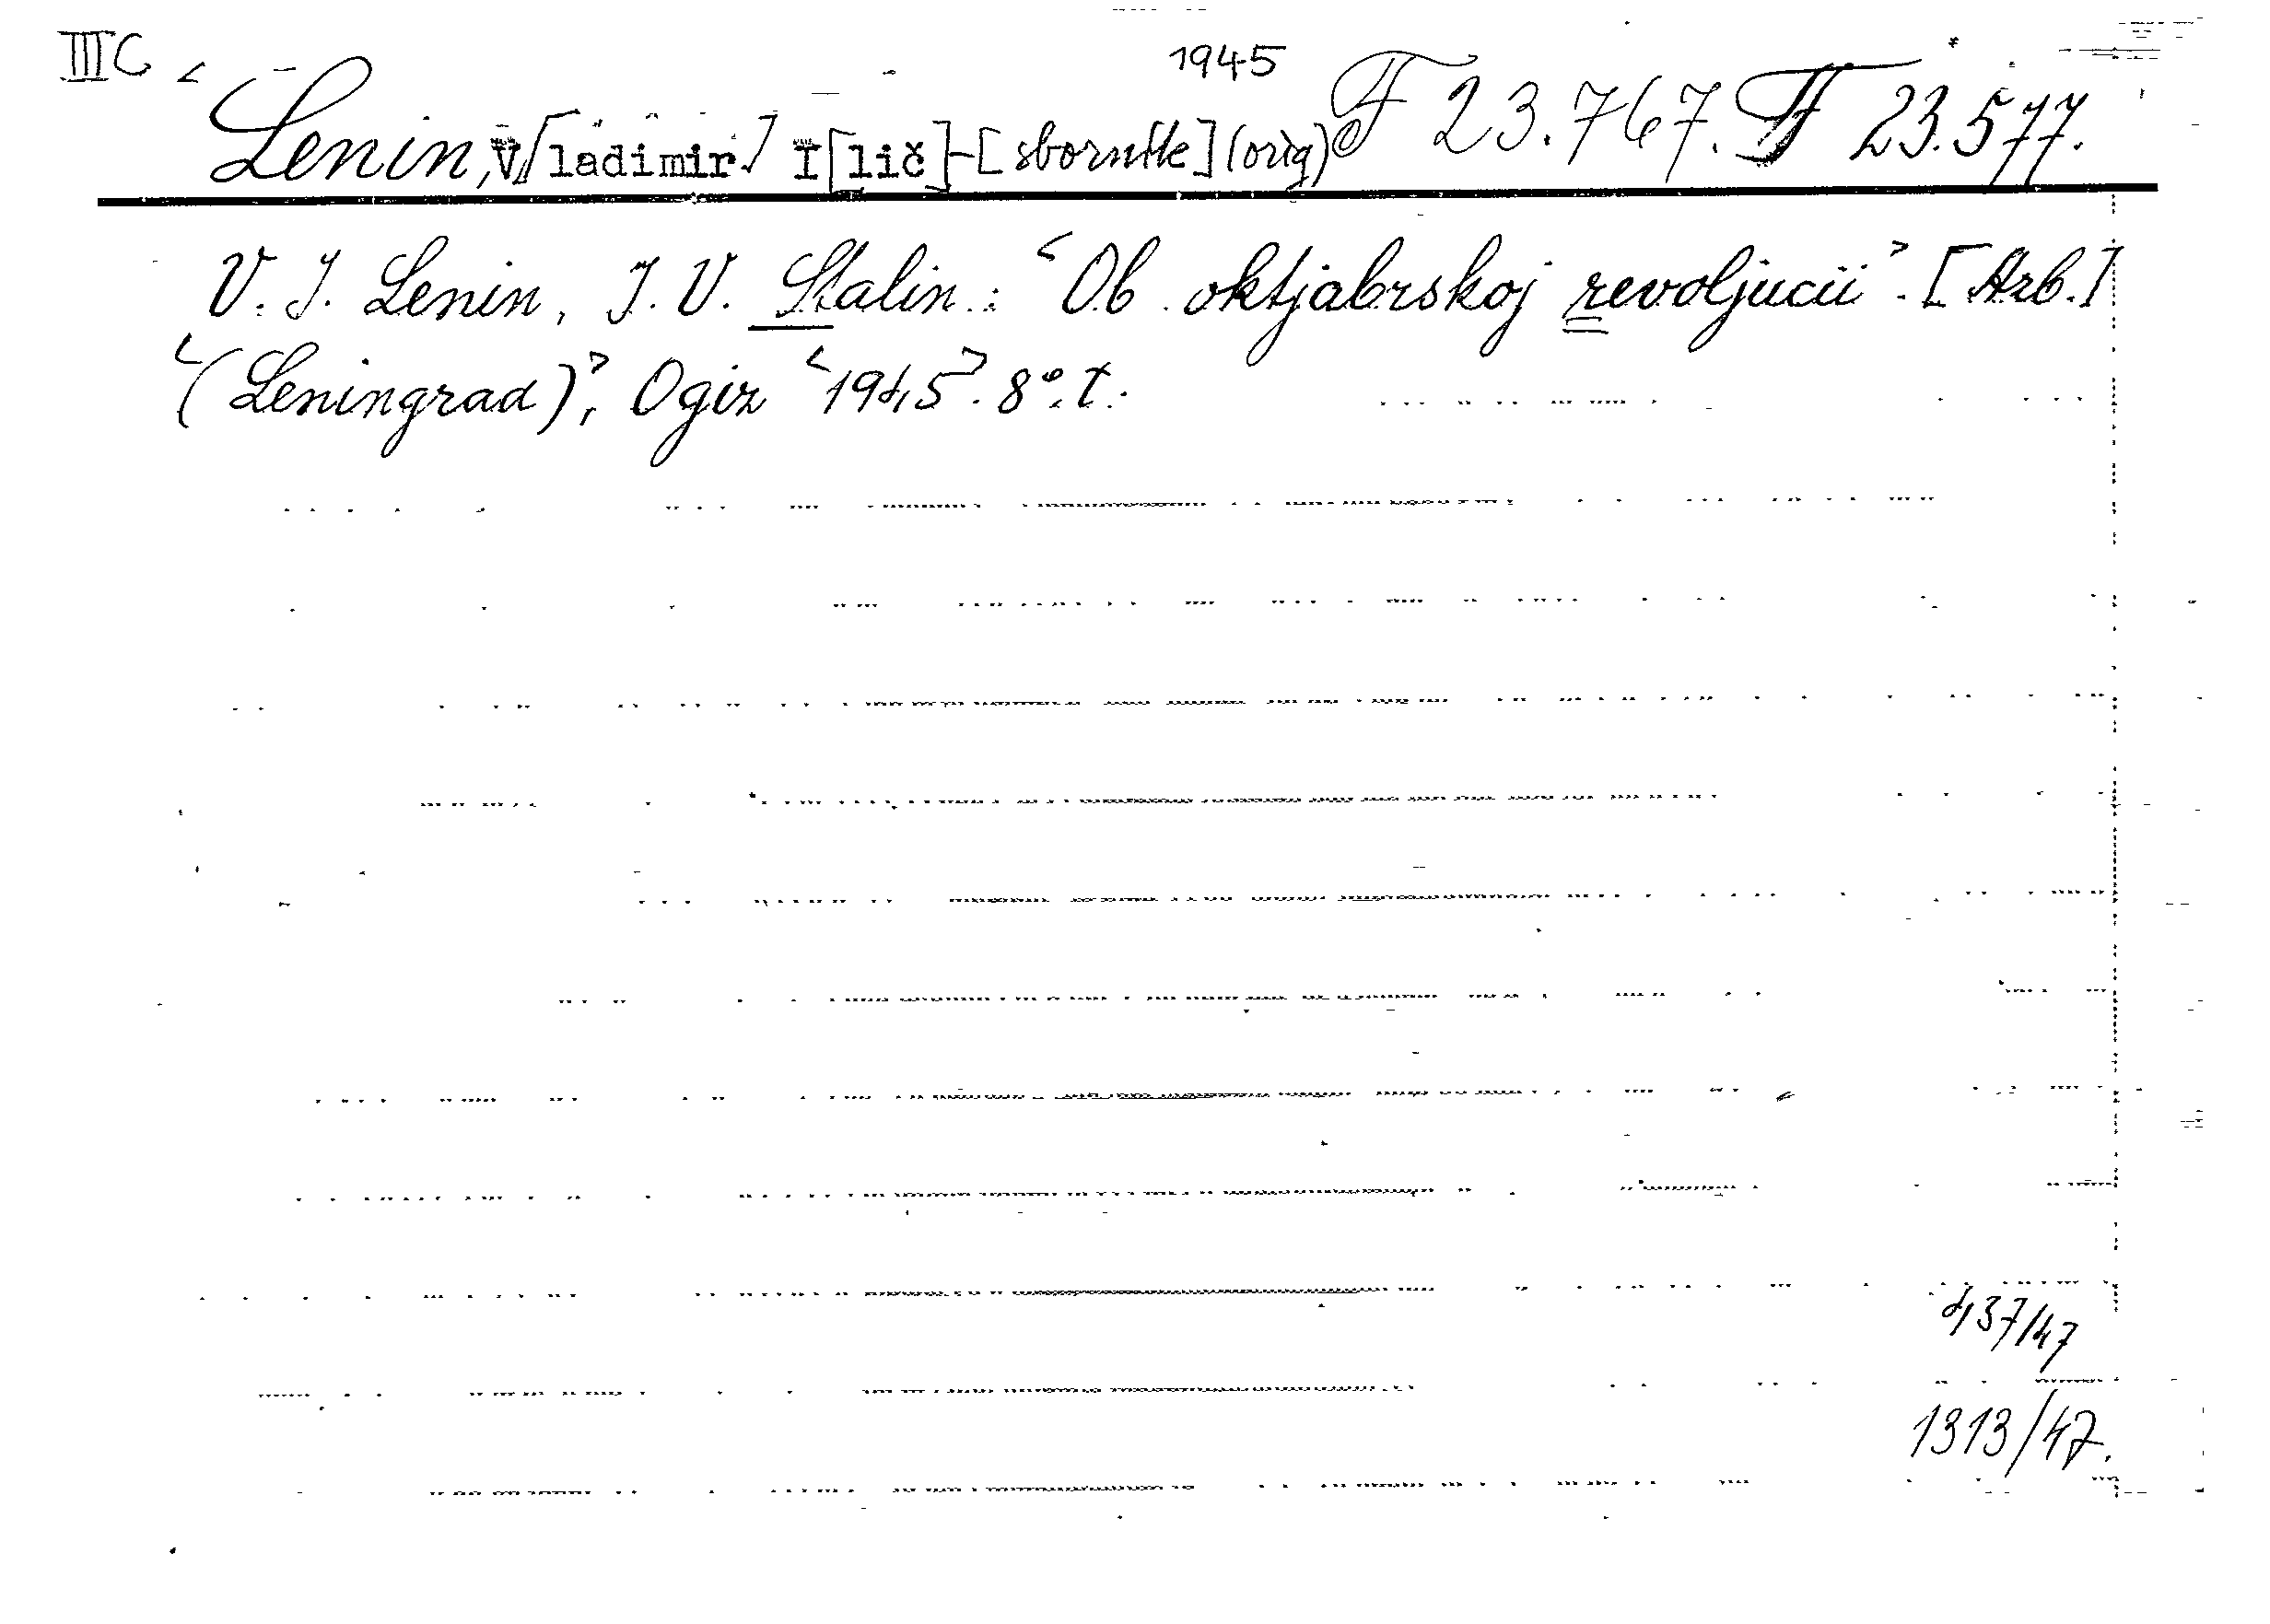 IIIC < 1945
Lenin, V[ladimir] I[lič]-[sborník] (orig) F 23.767. F 23.577.
V. I. Lenin, I. V. Stalin: <Ob oktjabrskoj revoljucii>. [Arb.]
<(Leningrad)>, Ogiz <1945>. 8° t.
437/47
1313/47.